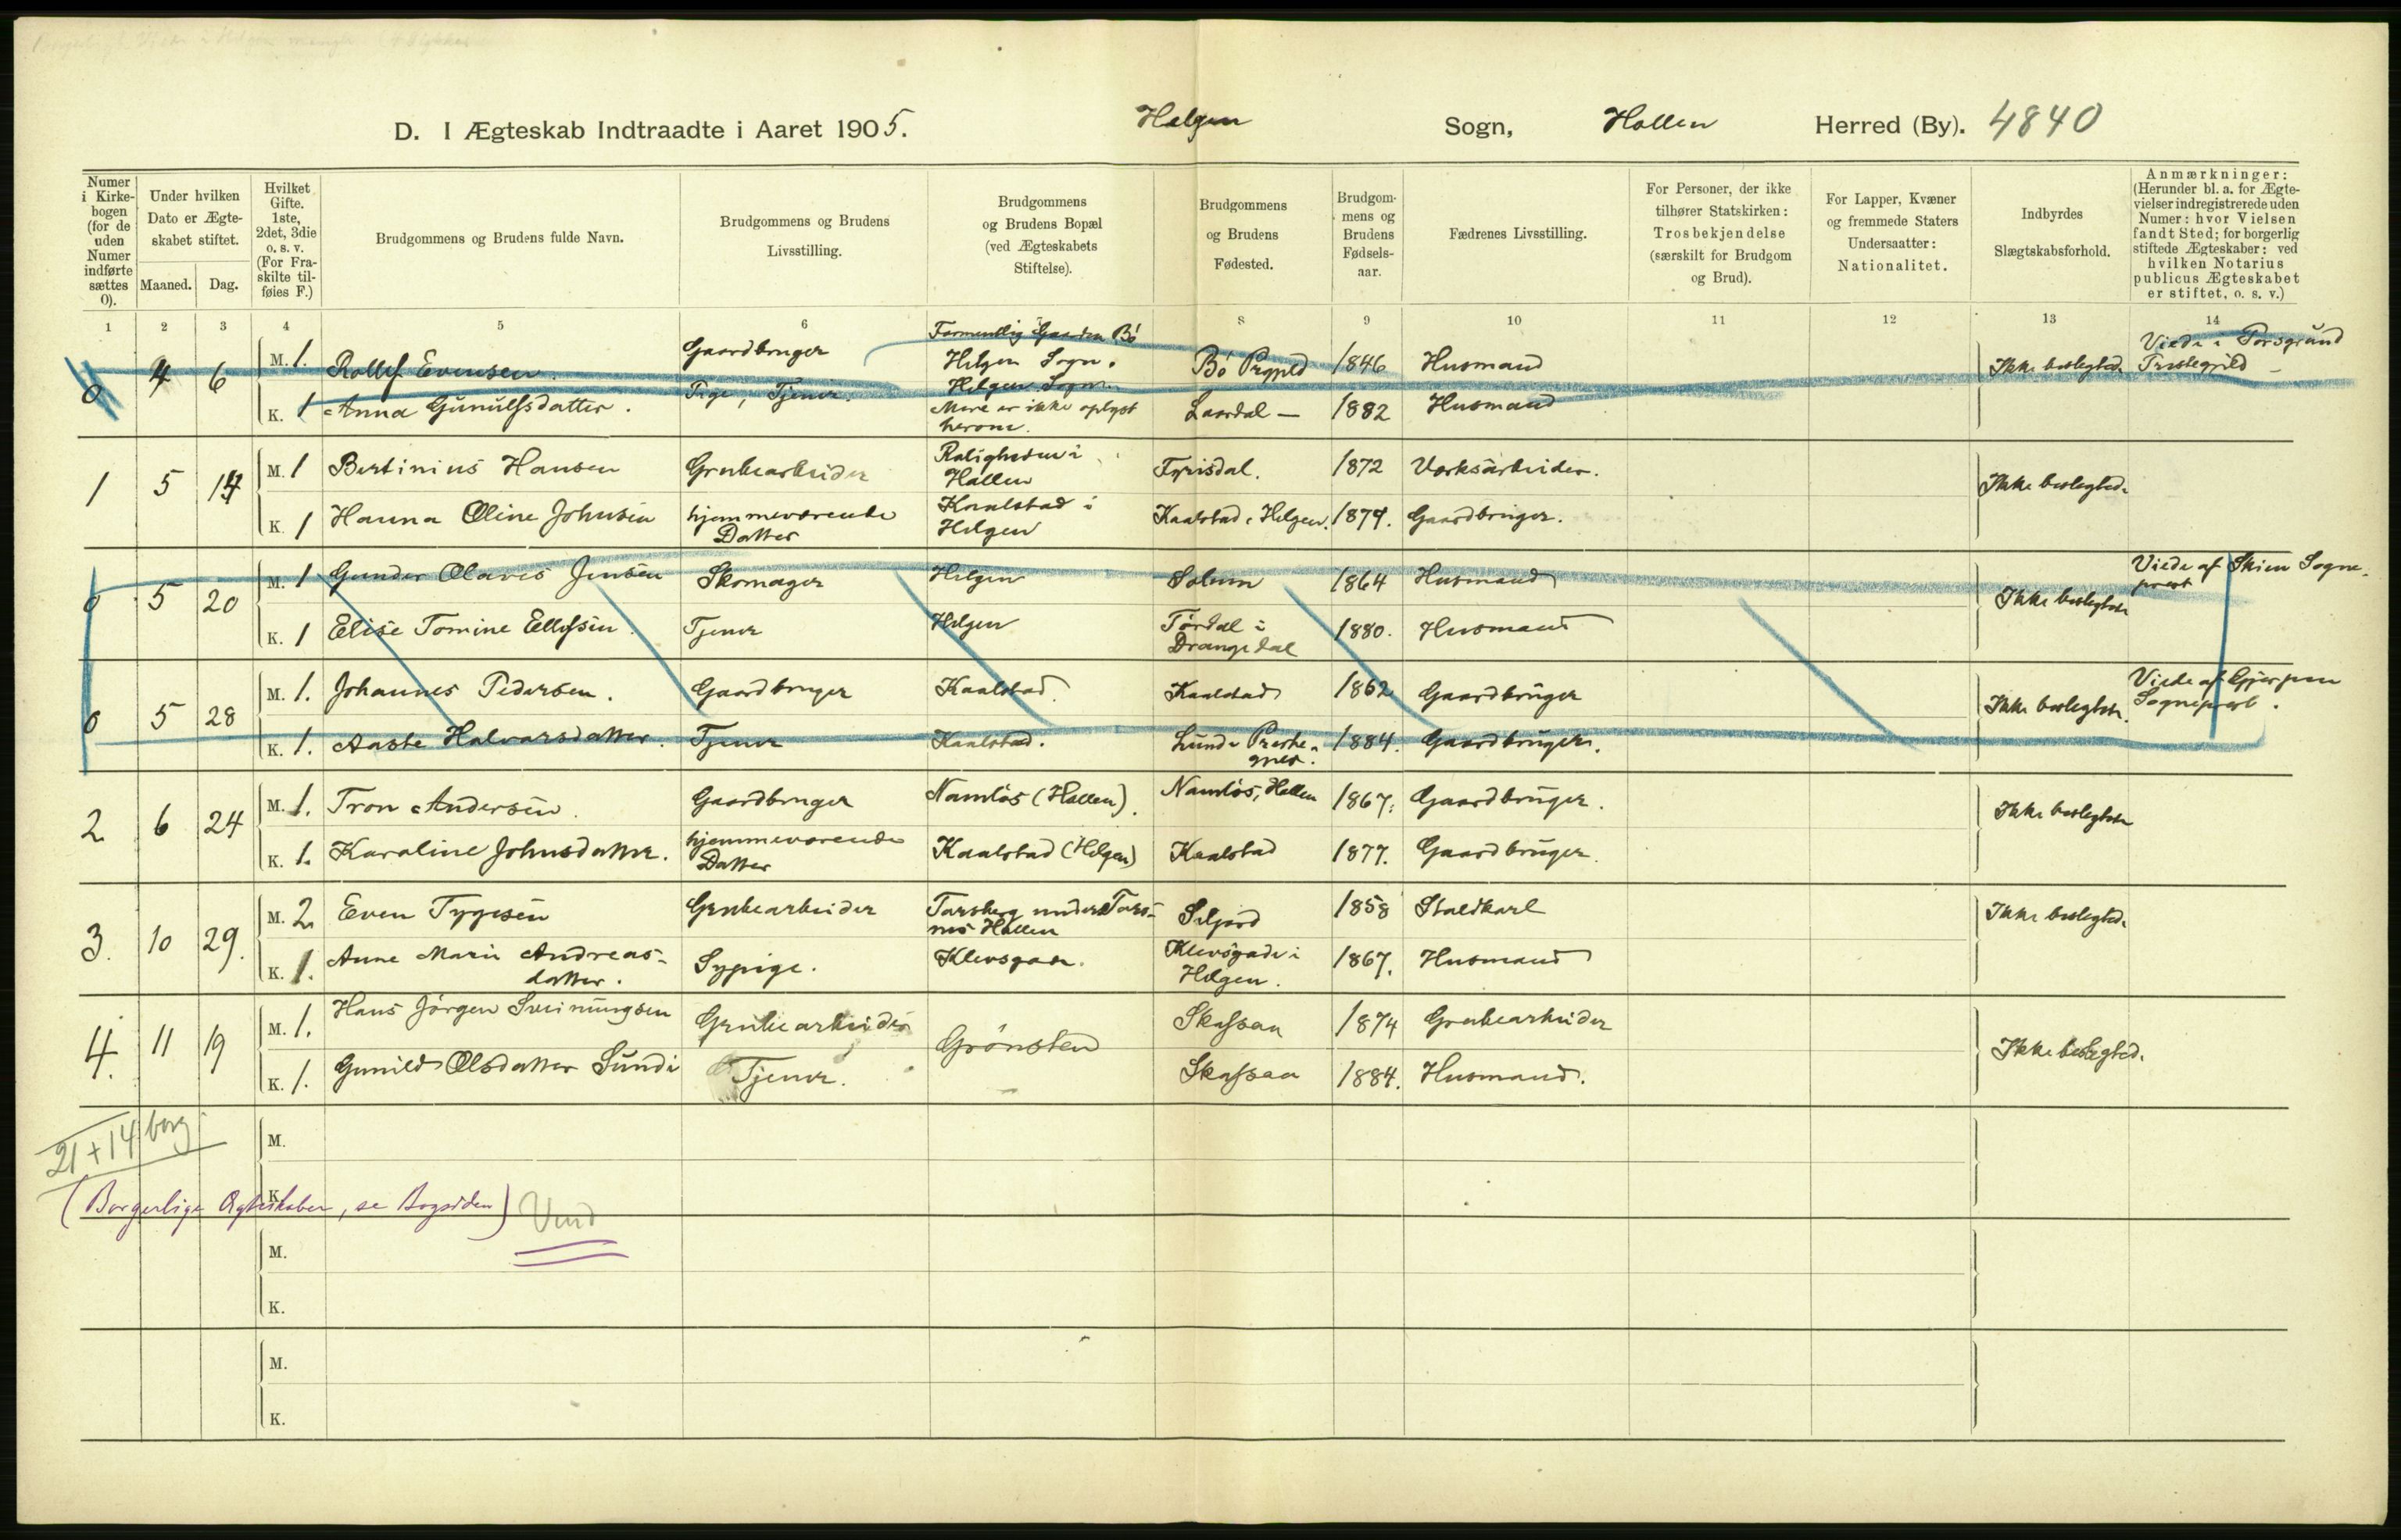 D. I Ægteskab Indtraadte i Aaret 1905. Helgen Sogn, Hollen Herred (By). 4840
Numer i Kirkebogen (for de uden Numer indførte sættes 0).
Under hvilken Dato er Ægteskabet stiftet.
Maaned. Dag.
Hvilket Gifte. 1ste, 2det, 3die o. s. v. (For Fraskilte tilføies F.)
Brudgommens og Brudens fulde Navn.
Brudgommens og Brudens Livsstilling.
Brudgommens og Brudens Bopæl (ved Ægteskabets Stiftelse).
Brudgommens og Brudens Fødested.
Brudgommens og Brudens Fødselsaar.
Fædrenes Livsstilling.
For Personer, der ikke tilhører Statskirken: Trosbekjendelse (særskilt for Brudgom og Brud).
For Lapper, Kvæner og fremmede Staters Undersaatter: Nationalitet.
Indbyrdes Slægtskabsforhold.
Anmærkninger: (Herunder bl. a. for Ægtevielser indregistrerede uden Numer: hvor Vielsen fandt Sted; for borgerlig stiftede Ægteskaber: ved hvilken Notarius publicus Ægteskabet er stiftet, o. s. v.)
1 2 3 4 5 6 7 8 9 10 11 12 13 14
0 4 6 M. 1. Rollef Evensen. Gaardbruger Formentlig Gaarden Bö Helgen Sogn. Bö Prgjeld 1846 Husmand Ikke beslegted. Viede i Porsgrund Prestegjeld
K. 1 Anna Gunulfsdatter. Pige, Tjener. Helgen Sogn. Mere er ikke oplyst herom. Laardal — 1882 Husmand
1 5 14 M. 1 Bertinius Hansen Grubearbeider Raligheden i Hollen Fyrisdal. 1872 Værksarbeider. Ikke beslegted.
K. 1 Hanna Oline Johnsen hjemmeværende Datter Kaalstad i Helgen Kaalstad, Helgen. 1879. Gaardbruger.
0 5 20 M. 1 Gunder Olaves Jensen Skomager Helgen Solum 1864 Husmand Ikke beslegted Viede af Skien Sogneprest
K. 1 Elise Tomine Ellefsen. Tjener Helgen Tørdal i Drangedal 1880. Husmand
0 5 28 M. 1. Johannes Pedersen. Gaardbruger Kaalstad. Kaalstad 1862 Gaardbruger Ikke beslegted. Viede af Gjerpen Sogneprest.
K. 1. Aaste Halvarsdatter. Tjener Kaalstad. Lunde Prestegjeld. 1884. Gaardbruger.
2 6 24 M. 1. Tron Andersen. Gaardbruger Namløs (Hollen). Namløs, Hollen 1867. Gaardbruger. Ikke beslegted
K. 1. Karoline Johnsdatter. hjemmeværende Datter Kaalstad (Helgen) Kaalstad 1877. Gaardbruger.
3. 10 29. M. 2 Even Tygesen Grubearbeider Hollen Seljord 1858 Staldkarl Ikke beslegted.
K. 1. Anne Marie Andreasdatter. Sypige. Klevsgade. Klevsgade i Helgen. 1867. Husmand
4. 11 19 M. 1. Hans Jörgen Sveinungsen Grubearbeider Grönsten Skafsaa 1874 Grubearbeider Ikke beslegted.
K. 1. Gunild Olsdatter Sundi Tjener. Skafsaa 1884. Husmand.
21+14 borg
M.
K.
(Borgerlige Ægteskaber, se Bagsiden) Vend
M.
K.
M.
K.